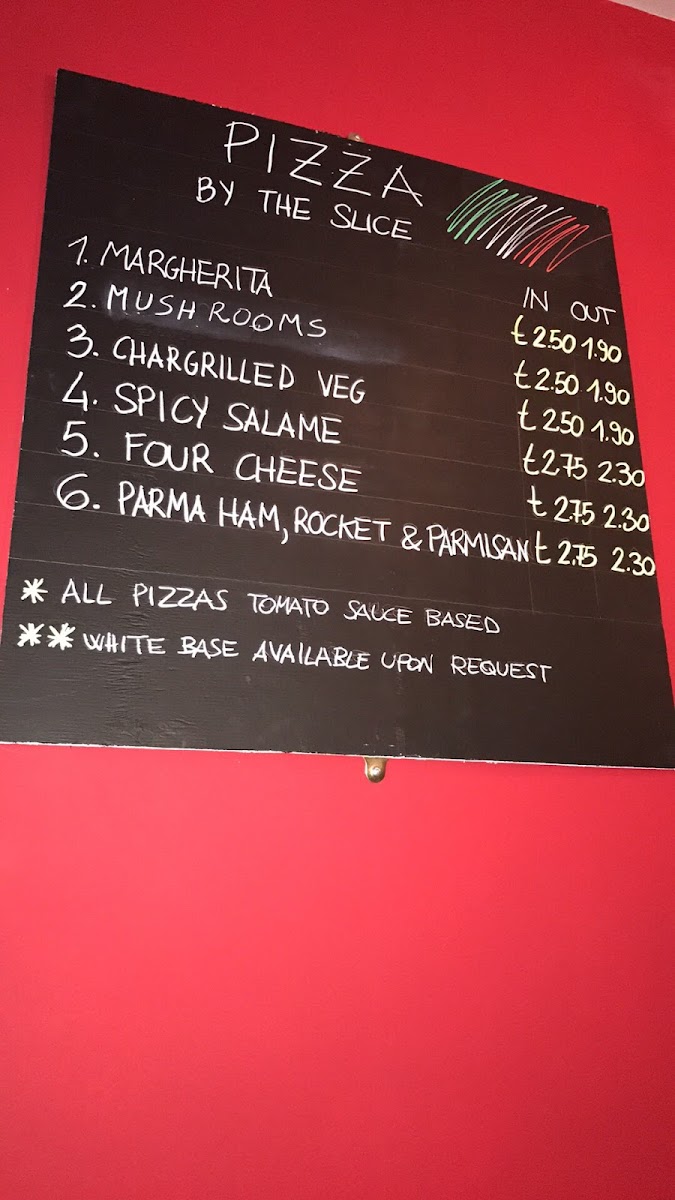 PIZZA
BY THE SLICE
IN OUT
1. MARGHERITA £2.50 1.90
2. MUSHROOMS £2.50 1.90
3. CHARGRILLED VEG £2.50 1.90
4. SPICY SALAME £2.75 2.30
5. FOUR CHEESE £2.75 2.30
6. PARMA HAM, ROCKET & PARMISAN £2.75 2.30
* ALL PIZZAS TOMATO SAUCE BASED
** WHITE BASE AVAILABLE UPON REQUEST